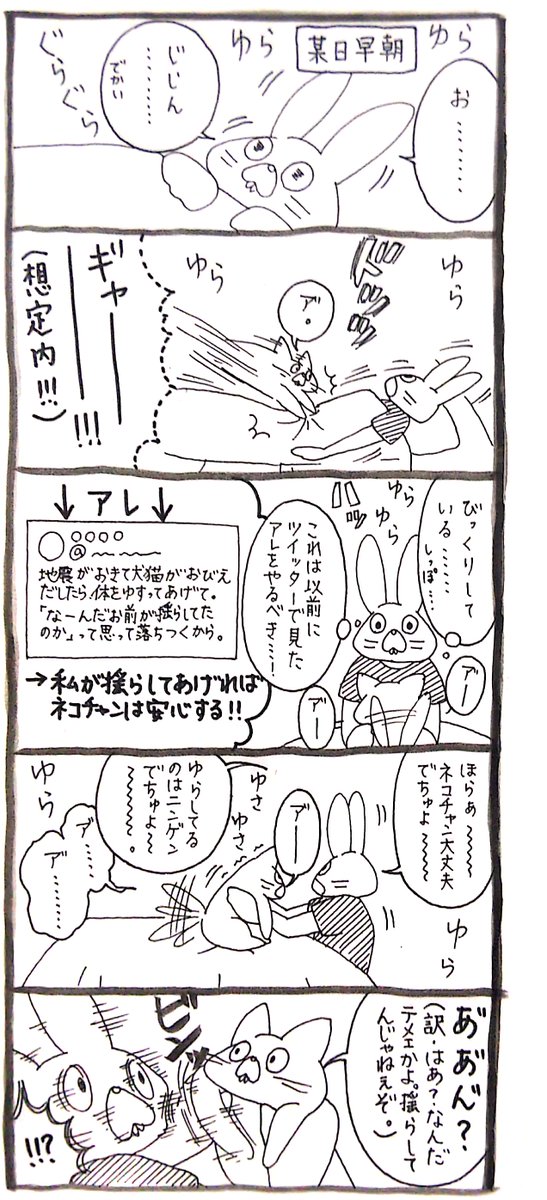 某日早朝
ゆら
お………
ゆら
じしん………
でかい
ぐらぐら
ゆら
ドッッ
ア。
ゆら
ギャーー!!!
(想定内!!!)
びっくりして
いる……
しっぽ…
ゆら
ゆら
これは以前に
ツイッターで見た
アレをやるべき…!
アー
アー
↓アレ↓
○○○○
@
地震がおきて犬猫がおびえ
だしたら体をゆすってあげて。
「なーんだお前が揺らしてた
のか」って思って落ちつくから。
→私が揺らしてあげれば
ネコチャンは安心する!!
ほらぁ〜〜〜〜
ネコチャン大丈夫
でちゅよ〜〜〜〜
ゆら
アー
ゆさ
ゆさ
ゆらしてる
のはニンゲン
でちゅよ〜
〜〜〜〜〜。
ゆら
ア゛……
ア゛………
あ゛あ゛ん゛?
(訳・はあ?なんだ
テメェかよ。揺らして
んじゃねぇぞ。)
ビンッ
!!?